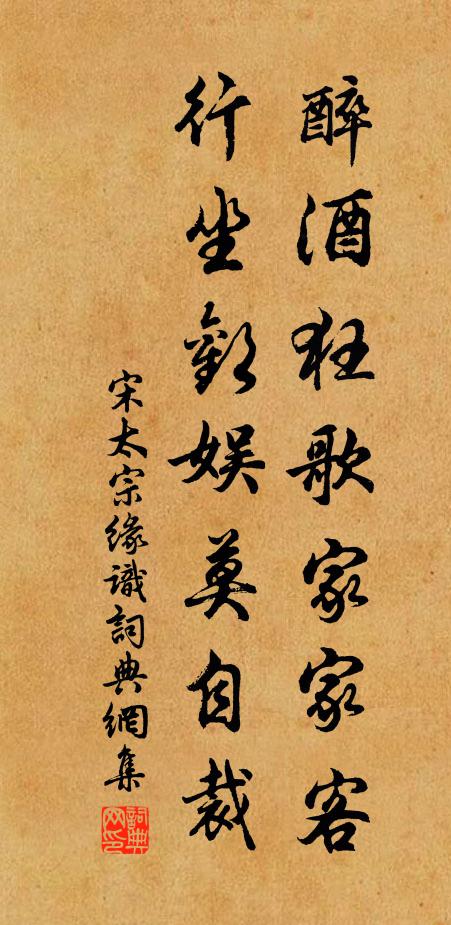 醉酒狂歌家家客
行坐歡娛莫自裁
宋太宗緣識詞典網集
詞典網印